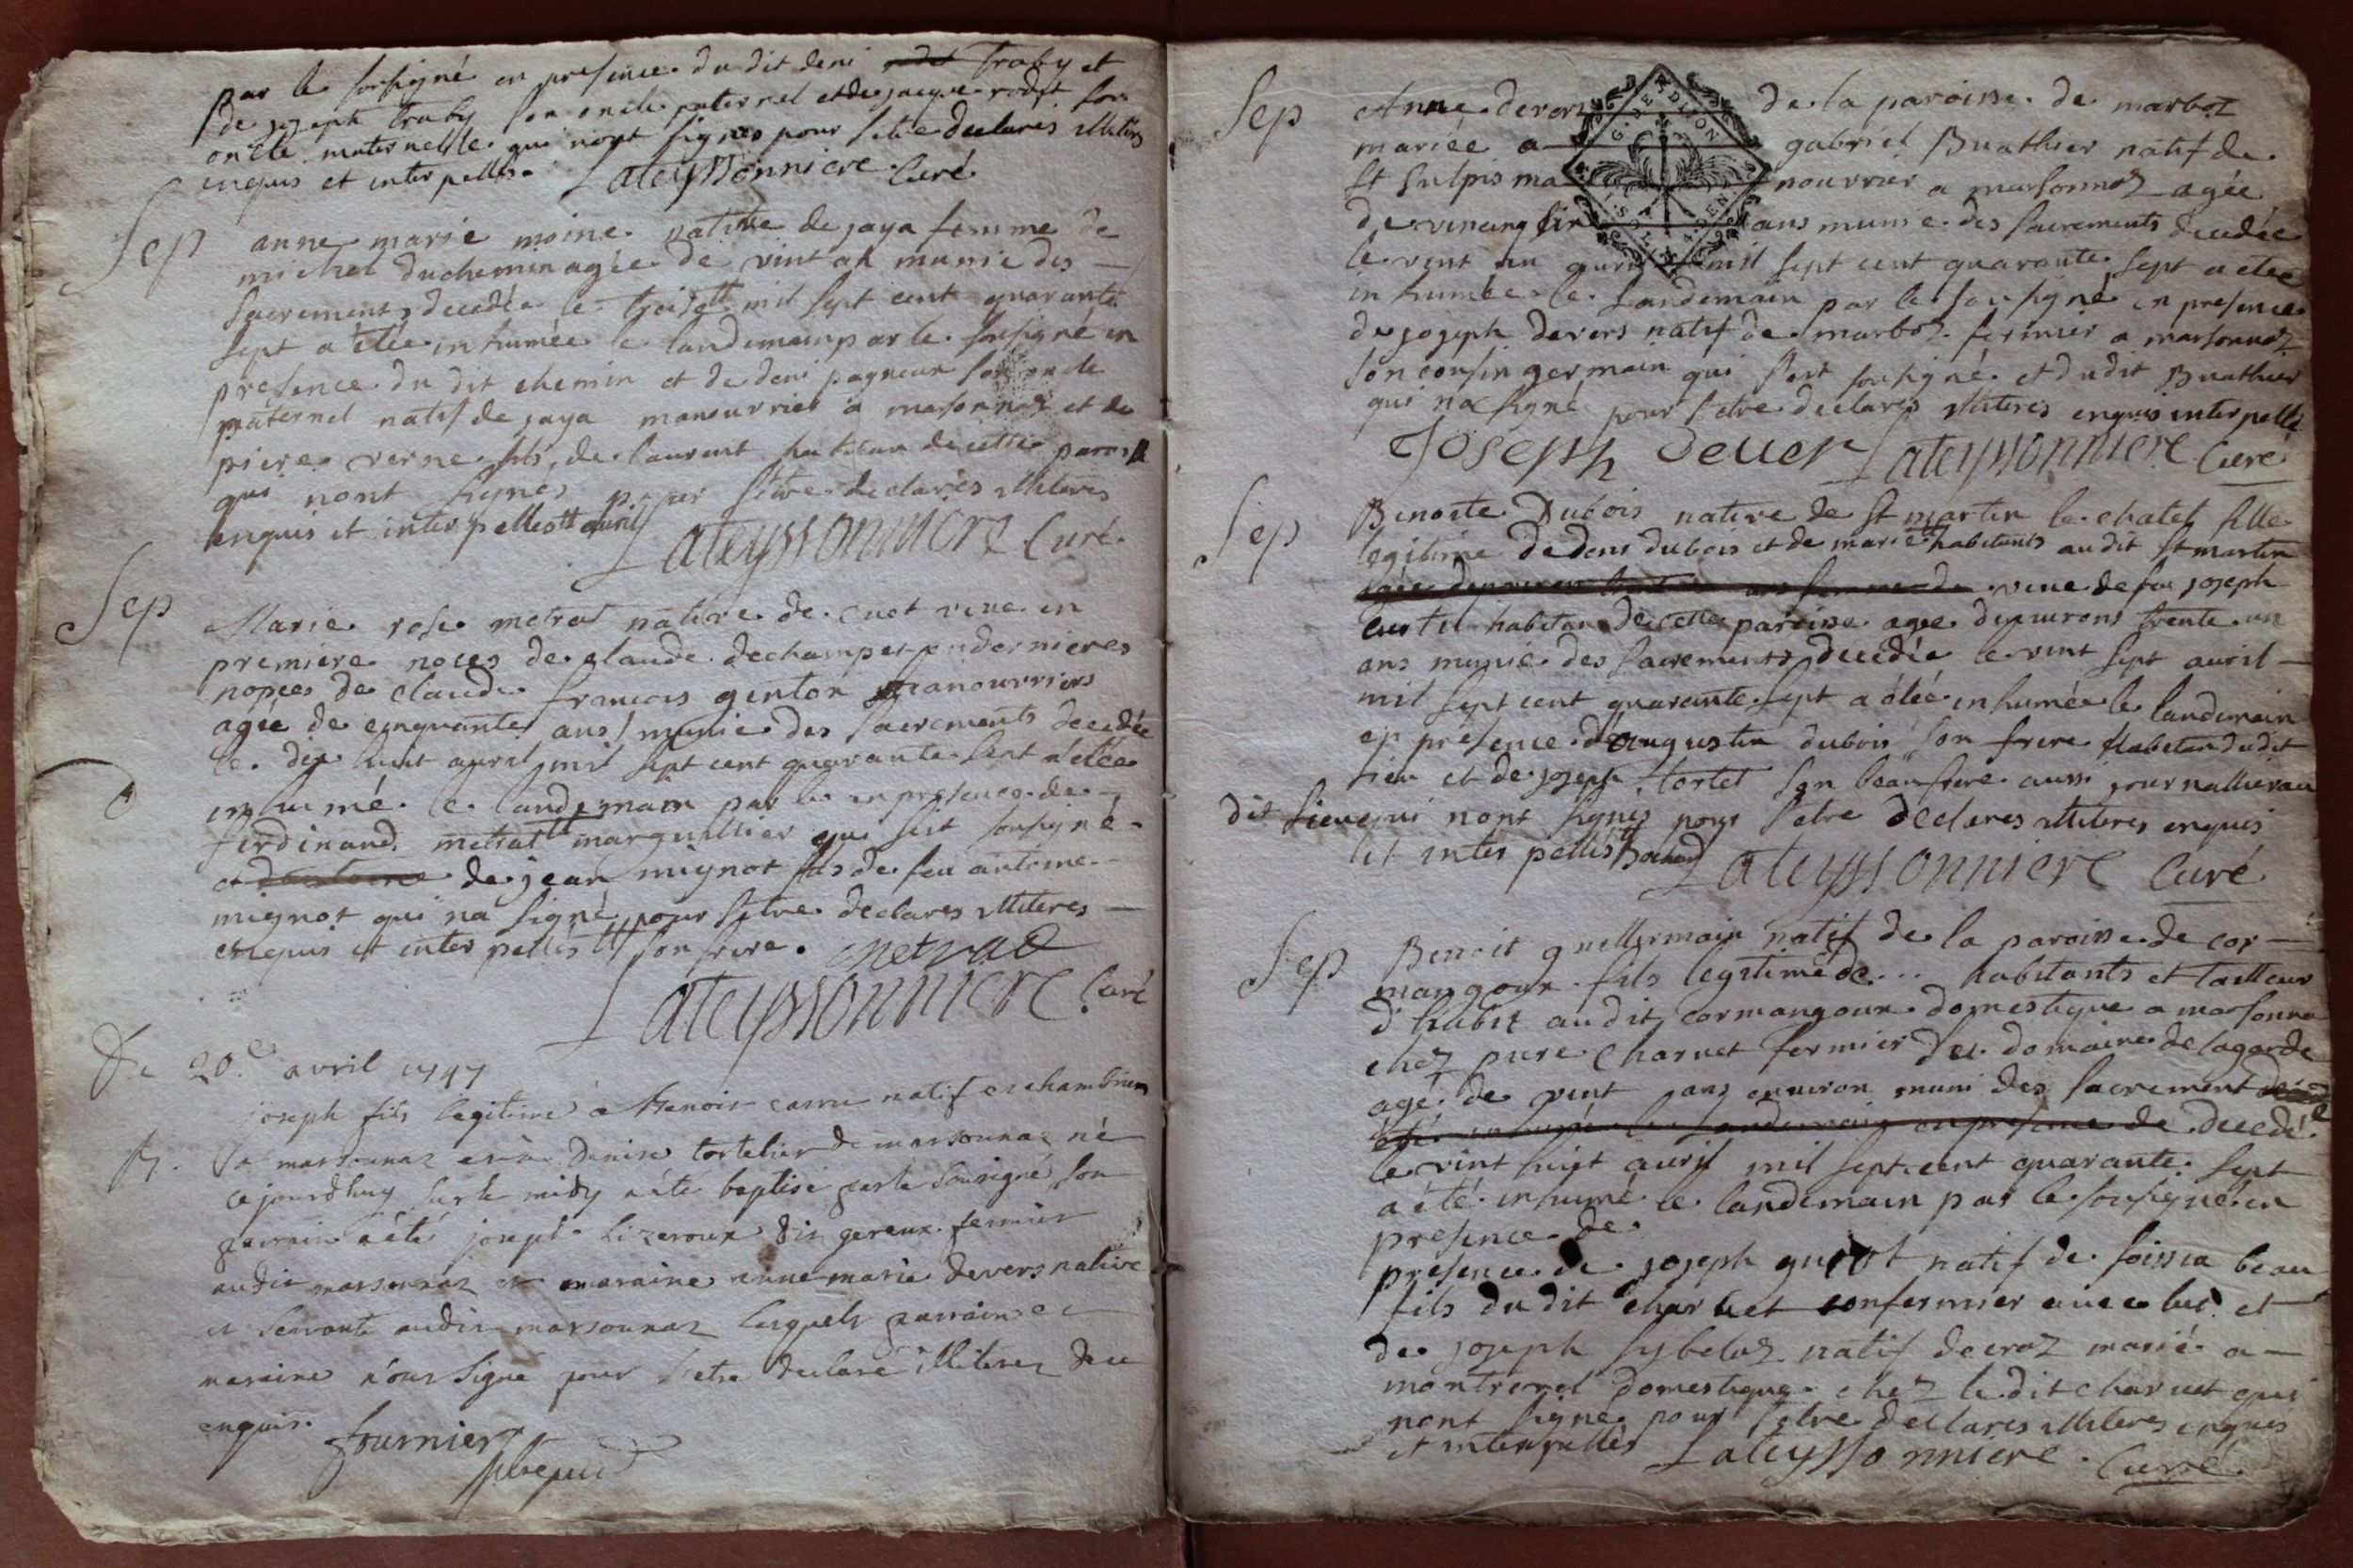 par le sousigné en presence du dit deni Traby et
de joseph traby son oncle paternel et de jacque rodet son
oncle maternelle qui n'ont signés pour setre declarés illiteres
enquis et interpellés. Lateyssonniere Curé
Sep anne marie moine native de jaya femme de
michel duchemin agée de vint ak munie des
sacrements decedée le trois tt mil sept cent quarante
sept a étée inhumée le landemain par le sousigné en
presence du dit chemin et de deni pagneux son oncle
maternel natif de jaya manourrier a marsonnaz et de
piere verne fils de laurent habitan de cette paroisse
qui nont signes pour setre declares illiteres
enquis et interpelles tt avril Lateyssonniere Curé
Sep Marie rose metrat native de cuet veue en
premiere noces de claude dechamp et en dernieres
nopces de claude francois genton manourriers
agée de cinquantes ans munie des sacrements decedée
le dix huit avril mil sept cent quarante sept a étée
inhumé le landemain par le en presence de
ferdinand metrat tt marguillier qui sest sousigné
et de jean mignot fils de feu antoine
mignot qui na signé pour setre declares illiteres
enquis et interpellés tt son frere. metrat
Lateyssonniere Curé
De 20e avril 1747
joseph fils legitime à Benoit carru natif
B. a marsonnaz et à Denise tortelier de marsonnaz né
ce jourdhuy sur le midy a été baptisé par le sousigné son
parrain a été joseph lizeroux dit gereux fermier
audit marsonnaz et maraine anne marie devers native
et servante audit marsonnaz lesquels parrain et
maraine n'ont signé pour setre declaré illiteres de ce
enquis. fournier
Sep Anne devers de la paroisse de marboz
mariée a gabriel Buathier natif de
st sulpis manourrier a marsonnaz agée
de vincinq ans munie des sacrements decedée
le vint un avril mil sept cent quarante sept a etée
inhumée le landemain par le sousigné en presence
de joseph devers natif de marboz fermier a marsonnaz
son cousin germain qui sest sousigné et du dit Buathier
qui na signé pour setre declares illiteres enquis interpellé
Joseph dever Lateyssonniere Curé
Sep Benoite Dubois native de st martin le chatel fille
legitime de deni dubois et de marie tt habitants au dit st martin
veue de feu joseph
habitan de cette paroisse agée denvirons trente un
ans munie des sacrements decedée le vint sept avril
mil sept cent quarante sept a étée inhumée le landemain
en presence daugustin dubois son frere habitan dudit
lieu et de joseph tortet son beaufrere aussi journallier au
dit lieu qui nont signes pour setre declares illiteres enquis
et interpellés tt Lateyssonniere Curé
Sep Benoit guillermain natif de la paroisse de cor-
mangoux fils legitime de... habitants et tailleur
d'habit au dit cormangoux domestique a marsonna
chez piere Charnet fermier du domaine de lagarde
agé de vint ans environ muni des sacrement
decedé
le vint huit avril mil sept cent quarante sept
a été inhumé le landemain par le sousigné en
presence de
presence de joseph guiot natif de foissia beau
fils du dit Charnet confermier avec luy et
de joseph sybeloz natif decroz marié a
montrevel domestique chez le dit charnet qui
nont signe pour setre declares illiteres enquis
et interpellés Lateyssonniere Curé